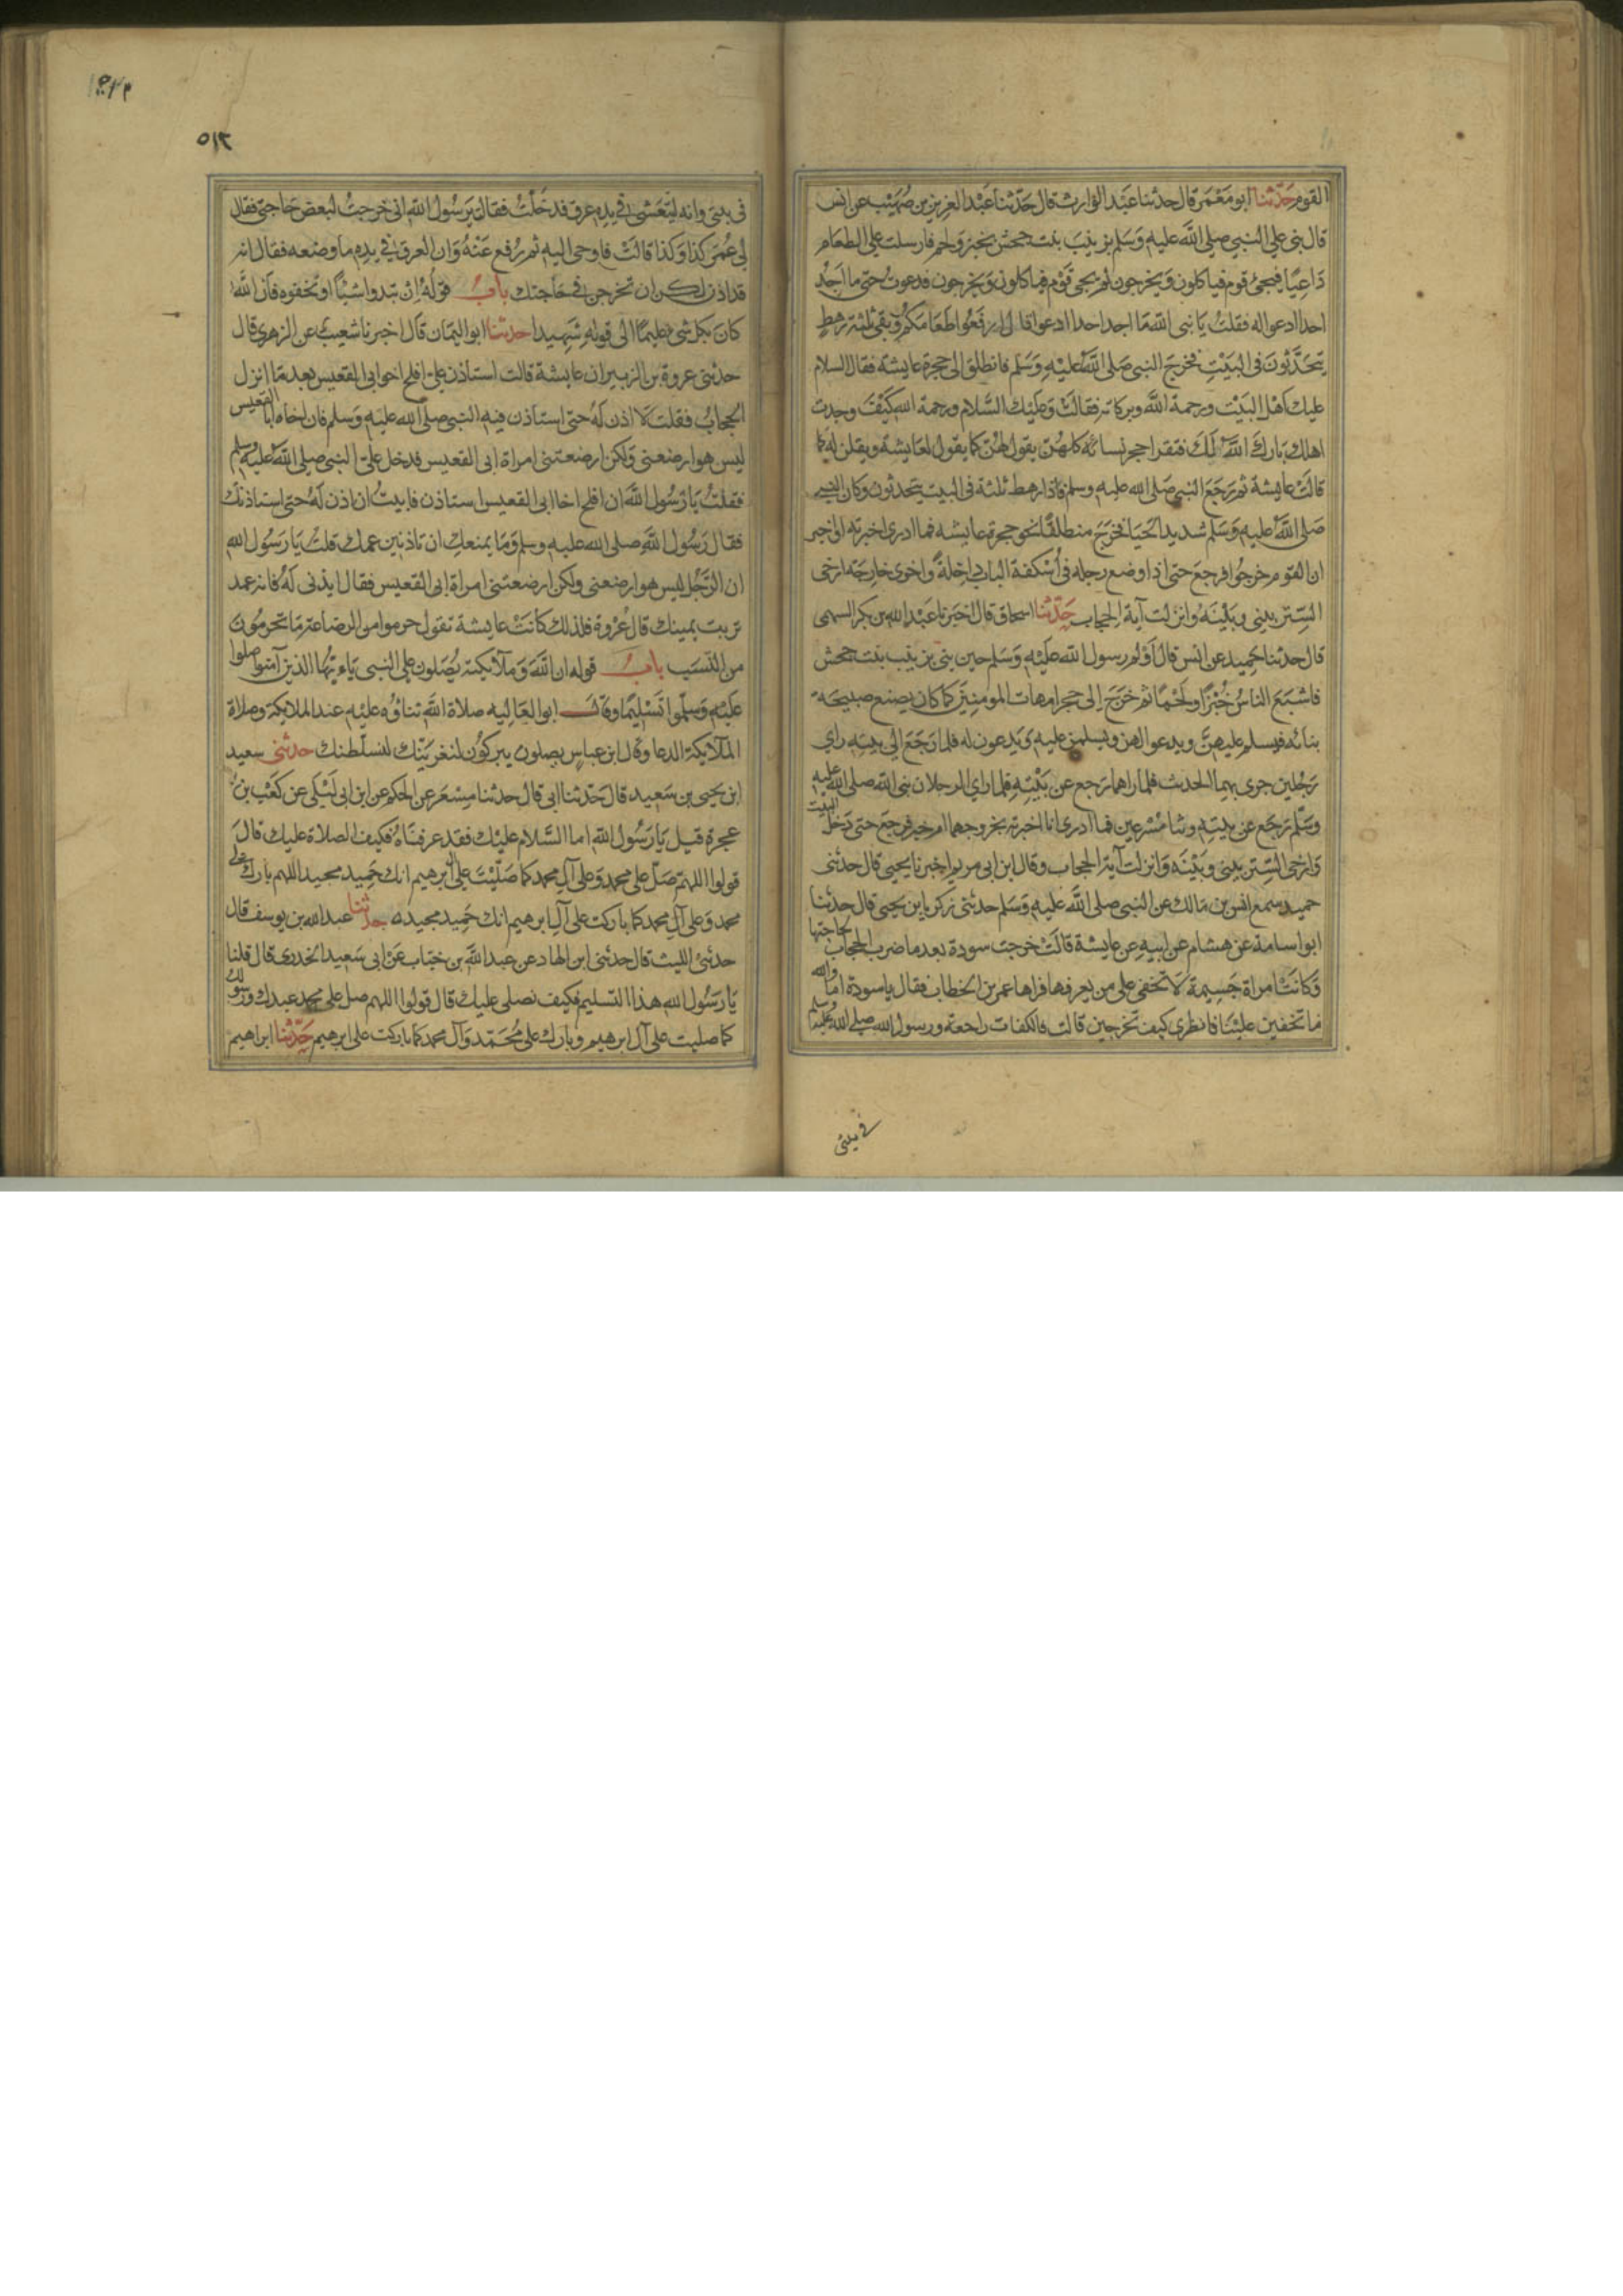 القوم حدثنا ابو معمر قال حدثنا عبد الوارث قال حدثنا عبد العزيز بن صهيب عن انس
قال بنى على النبي صلى الله عليه وسلم بزينب بنت جحش بخبز ولحم فارسلت على الطعام
داعيا فيجئ قوم فياكلون ويخرجون ثم يجى قوم فياكلون ويخرجون فدعوت حتى ما اجد
احدا ادعو اله فقلت يا نبى الله ما اجد احدا ادعو قال ارفعوا طعامكم وبقى ثلثة رهط
يتحدثون فى البيت فخرج النبى صلى الله عليه وسلم فانطلق الى حجرة عايشة فقال السلام
عليك اهل البيت ورحمة الله وبركاته فقالت وعليك السلام ورحمة الله كيف وجدت
اهلك بارك الله لك فتقرا حجر نسائه كلهن يقول لهن كما يقول لعايشة ويقلن له كما
قالت عايشة ثم رجع النبى صلى الله عليه وسلم فاذا رهط ثلثة فى البيت يتحدثون وكان النبى
صلى الله عليه وسلم شديد الحيا فخرج منطلقا نحو حجرة عايشه فما ادرى اخبرته او اخبر
ان القوم خرجوا فرجع حتى اذا وضع رجله فى أسكفة الباب داخلة واخرى خارجة ارخى
الستر بينى وبينه وانزلت آية الحجاب حدثنا اسحاق قال اخبرنا عبد الله بن بكر السهمى
قال حدثنا حميد عن انس قال أولم رسول الله عليه وسلم حين بنى بزينب بنت جحش
فاشبع الناس خبزا ولحما ثم خرج الى حجر امهات المومنين كما كان يصنع صبيحة
بنائه فيسلم عليهن ويدعو لهن ويسلمن عليه ويدعون له فلما رجع الى بيته راى
رجلين جرى بهما الحديث فلما راهما رجع عن بيته فلما راى الرجلان نبى الله صلى الله عليه
وسلم رجع عن بيته وثبا مسرعين فما ادرى انا اخبرته بخروجهما ام خبر فرجع حتى دخل البيت
وارخى الستر بينى وبينه وانزلت آية الحجاب وقال ابن ابى مريم اخبرنا يحيى قال حدثنى
حميد سمع انس بن مالك عن النبى صلى الله عليه وسلم حدثنى زكريا بن يحيى قال حدثنا
ابو اسامة عن هشام عن ابيه عن عايشة قالت خرجت سودة بعد ما ضرب الحجاب لحاجتها
وكانت امراة جسيمة لا تخفى على من يعرفها فراها عمر بن الخطاب فقال يا سودة اما والله
ما تخفين علينا فانظرى كيف تخرجين قالت فانكفات راجعة ورسول الله صلى الله عليه وسلم
فى بيتى
٥١٢
فى بيتى وانه ليتعشى وفى يده عرق فدخلت فقالت يرسول الله انى خرجت لبعض حاجتى فقال
لى عمر كذا وكذا قالت فاوحى اليه ثم رفع عنه وان العرق فى يده ما وضعه فقال انه
قد اذن لكن ان تخرجن فى حاجتك باب قوله ان تبدوا شيئا او تخفوه فان الله
كان بكل شى عليما الى قوله شهيدا حدثنا ابو اليمان قال اخبرنا شعيب عن الزهرى قال
حدثنى عروة بن الزبير ان عايشة قالت استاذن على افلح اخو ابى القعيس بعد ما انزل
الحجاب فقلت لا اذن له حتى استاذن فيه النبى صلى الله عليه وسلم فان اخاه ابا القعيس
ليس هو ارضعنى ولكن ارضعتنى امراة ابى القعيس فدخل على النبى صلى الله عليه وسلم
فقلت يا رسول الله ان افلح اخا ابى القعيس استاذن فابيت ان اذن له حتى استاذنك
فقال رسول الله صلى الله عليه وسلم وما يمنعك ان تاذنين عمك قلت يا رسول الله
ان الرجل ليس هو ارضعنى ولكن ارضعتنى امراة ابى القعيس فقال ايذنى له فانه عمك
تربت يمينك قال عروة فلذلك كانت عايشة تقول حرموا من الرضاعة ما تحرمون
من النسب باب قوله ان الله وملايكته يصلون على النبى ياءيها الذين آمنوا صلوا
عليه وسلموا تسليما وقال ابو العاليه صلاة الله ثناؤه عليه عند الملايكة وصلاة
الملايكة الدعا وقال ابن عباس يصلون يبركون لنغرينك لنسلطنك حدثنى سعيد
ابن يحيى بن سعيد قال حدثنا ابى قال حدثنا مسعر عن الحكم عن ابن ابى ليلى عن كعب بن
عجرة قيل يا رسول الله اما السلام عليك فقد عرفناه فكيف الصلاة عليك قال
قولوا اللهم صل على محمد وعلى آل محمد كما صليت على آل ابرهيم انك حميد مجيد اللهم بارك على
محمد وعلى آل محمد كما باركت على آل ابرهيم انك حميد مجيد حدثنا عبد الله بن يوسف قال
حدثنى الليث قال حدثنى ابن الهاد عن عبد الله بن خباب عن ابى سعيد الخدرى قال قلنا
يا رسول الله هذا التسليم فكيف نصلى عليك قال قولوا اللهم صل على محمد عبدك ورسولك
كما صليت على آل ابرهيم وبارك على محمد وآل محمد كما باركت على ابرهيم حدثنا ابراهيم